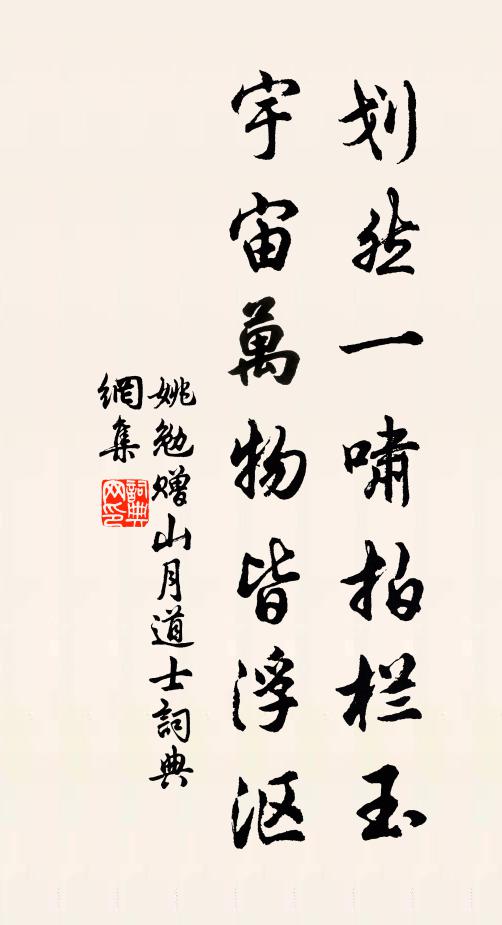 划然一啸拍栏玉
宇宙萬物皆浮沤
姚勉赠山月道士詞典
網集
詞典
网印